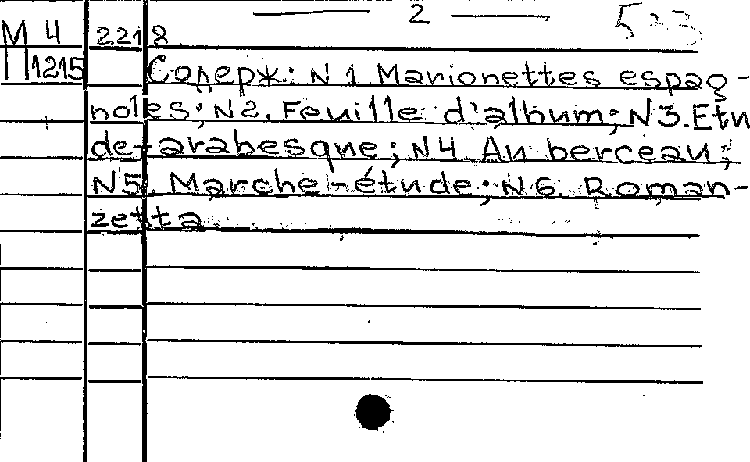 — 2 —
М 4 2218
П1215 Содерж: N 1 Marionettes espag-
noles; N2. Feuille d'album; N3. Etu
de-arabesque; N4 Au berceau;
N5. Marche-étude; N6 Roman-
zetta.